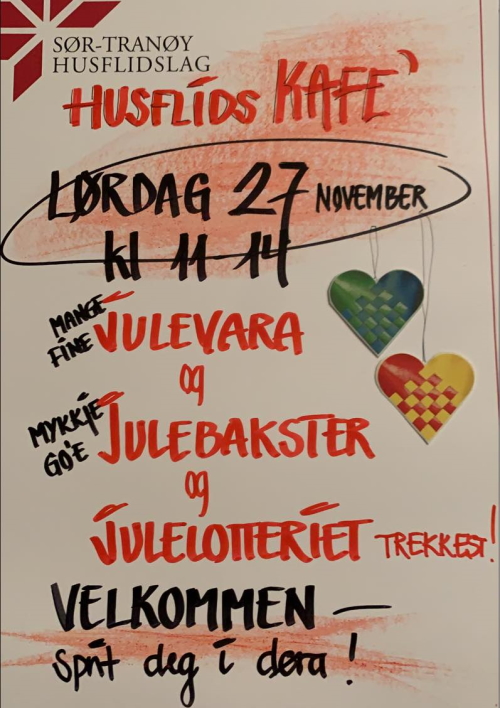 SØR-TRANØY
HUSFLIDSLAG
HUSFLIDS KAFE'
LØRDAG 27 NOVEMBER
kl 11-14
MANGE FINE JULEVARA
og
MYKKJE GO'E JULEBAKSTER
og
JULELOTTERIET TREKKEST!
VELKOMMEN —
Sprit deg i døra!